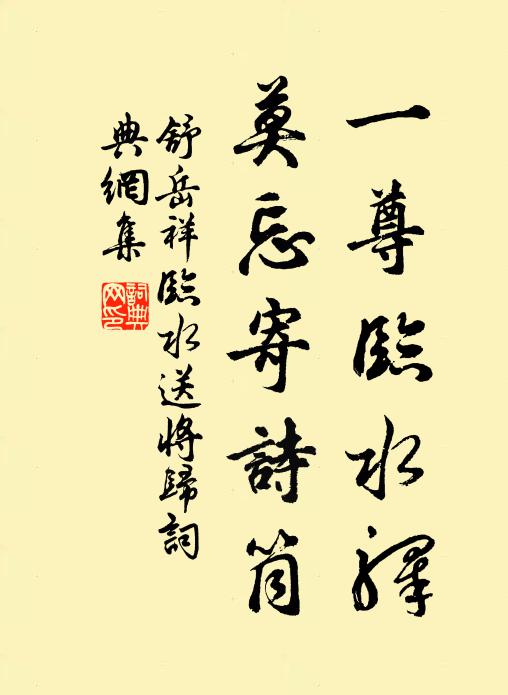 一尊臨水驛
莫忘寄詩筒
舒岳祥臨水送將歸詞
典網集
詞典
网印